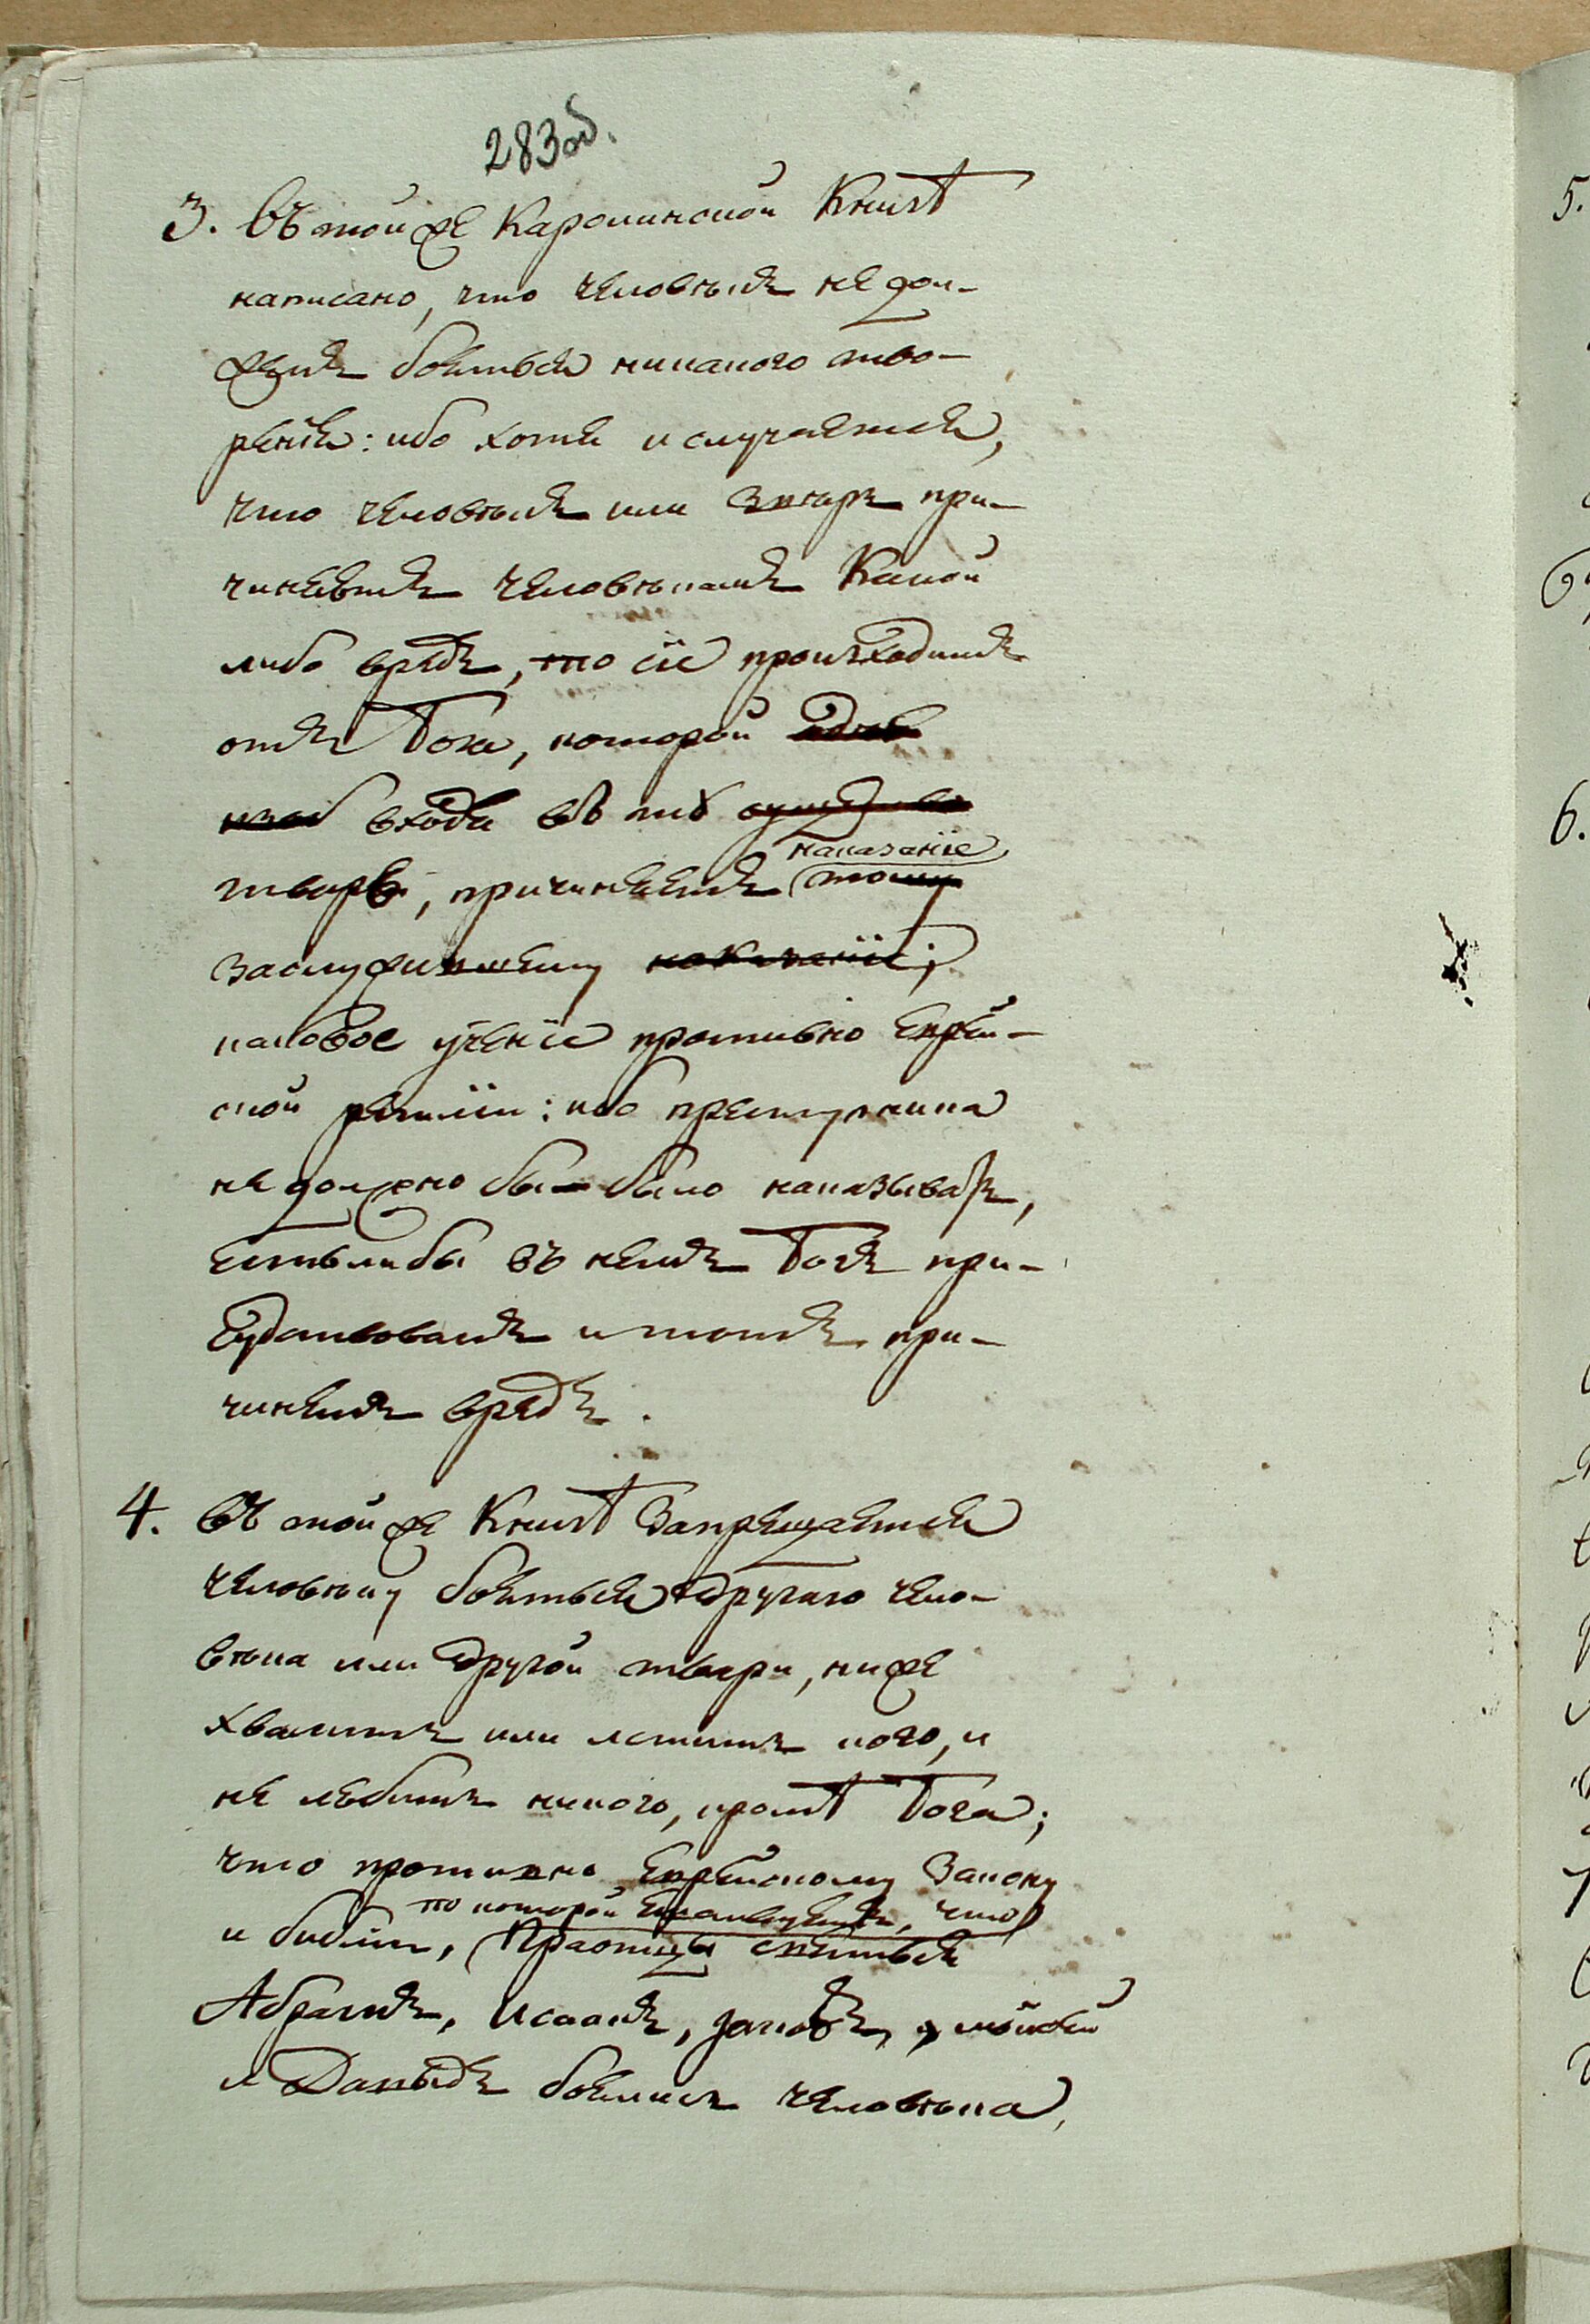 283 об.
3. Въ той же Каролинской Книгѣ
написано, что человѣкъ не дол-
женъ бояться никакого тво-
ренія: ибо хотя и случается,
что человѣкъ или звѣрь при-
чиняетъ человѣкамъ какой
либо вредъ, то сіе происходитъ
отъ Бога, которой
входя въ тѣ
тварь, причиняетъ наказаніе тому
заслужившему наказаніе;
каковое ученіе противно Еврей-
ской религіи: ибо преступника
не должно бы было наказывать,
естьлибы въ немъ Богъ при-
сутствовалъ и тотъ при-
чинялъ вредъ.
4. Въ той же Книгѣ запрещается
человѣку бояться другаго чело-
вѣка или другой твари, ниже
хвалить или льстить кого, и
не любить никого, кромѣ Бога;
что противно Еврейскому Закону
по которой повѣствуетъ, что
и библіи, Праотцы
Абрагамъ, Исаакъ, Іаковъ, Мойсей
и Давыдъ боялись человѣка,
5.
6.